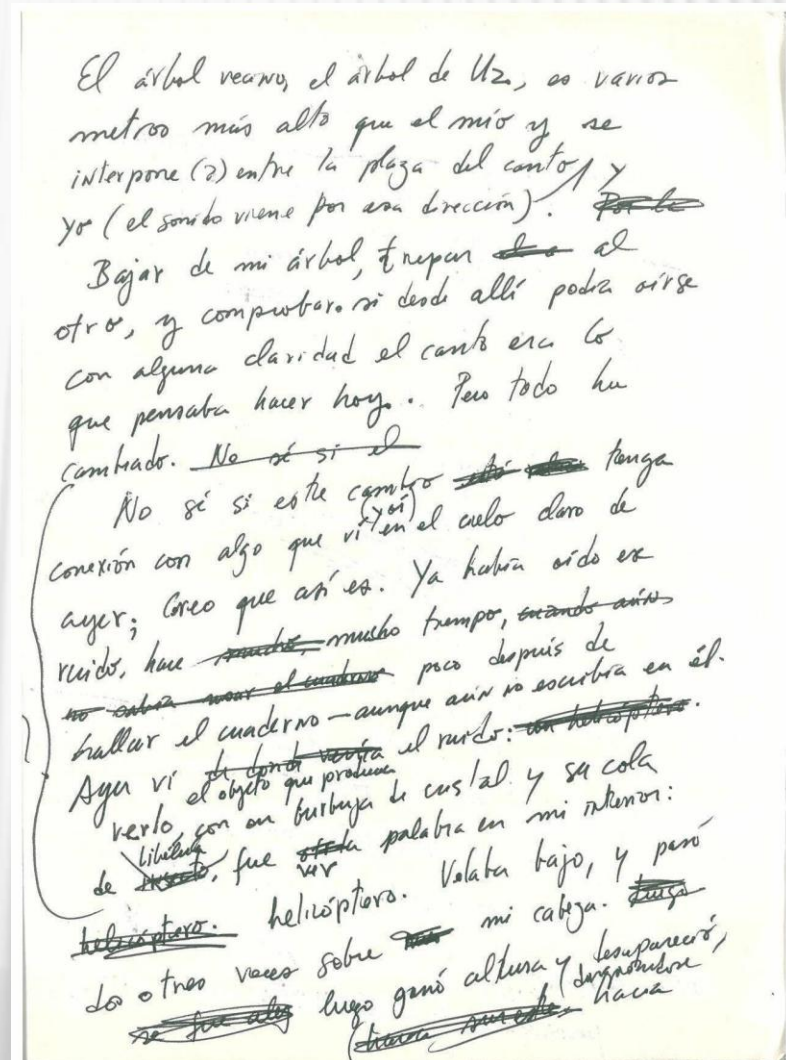 El árbol vecino, el árbol de Uz, es varios
metros más alto que el mío y se
interpone (2) entre la plaza del canto y
yo (el sonido viene por esa dirección). Por la
Bajar de mi árbol, trepar al
otro, y comprobar si desde allí podía oirse
con alguna claridad el canto era lo
que pensaba hacer hoy. Pero todo ha
cambiado. No sé si el
No sé si este cambio tenga
conexión con algo que vi (y oí) en el cielo claro de
ayer; Creo que así es. Ya había oído ese
ruido, hace mucho, mucho tiempo, cuando aún
no sabía usar el cuaderno poco después de
hallar el cuaderno — aunque aún no escribía en él.
Ayer vi de donde venía el objeto que producía el ruido: un helicóptero.
verlo, con su burbuja de cristal y su cola
de insecto libélula, fue ver la palabra en mi interior:
helicóptero. helicóptero. Volaba bajo, y pasó
dos o tres veces sobre mi cabeza. Luego
se fue luego ganó altura y desapareció,
hacia sureste, hacia